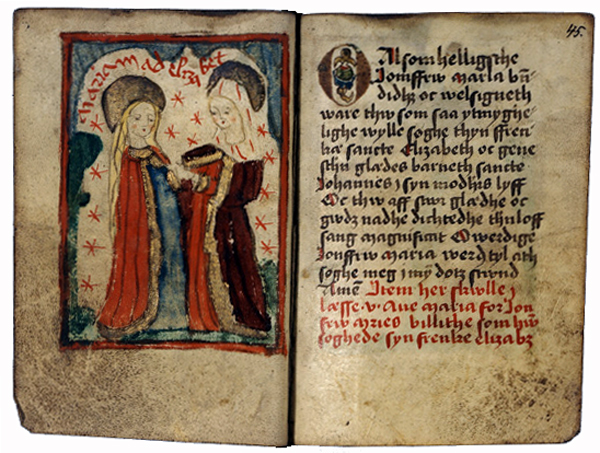 mariam ad elizabet
45.
O Alsom helligsthe
Jomffrw maria bñ-
didhz oc welsigneth
ware thw som saa ytmyghe-
lighe wylle soghe thyn ffren
kæ sancte Elizabeth oc gene
sthn glædes barneth sancte
Johannes j syn modhrs lyff
Oc thw aff stwr glædhe oc
gwdz nadhe dichtedhe thn loff
sang magnificat O werdige
Jomffrw maria werd tyl ath
soghe meg j mÿ dotz stwnd
Amē Item her skwlle j
læsse ·v· Aue maria for Jom
frw mries billithe som hw̄
soghede syn frenke elizabz